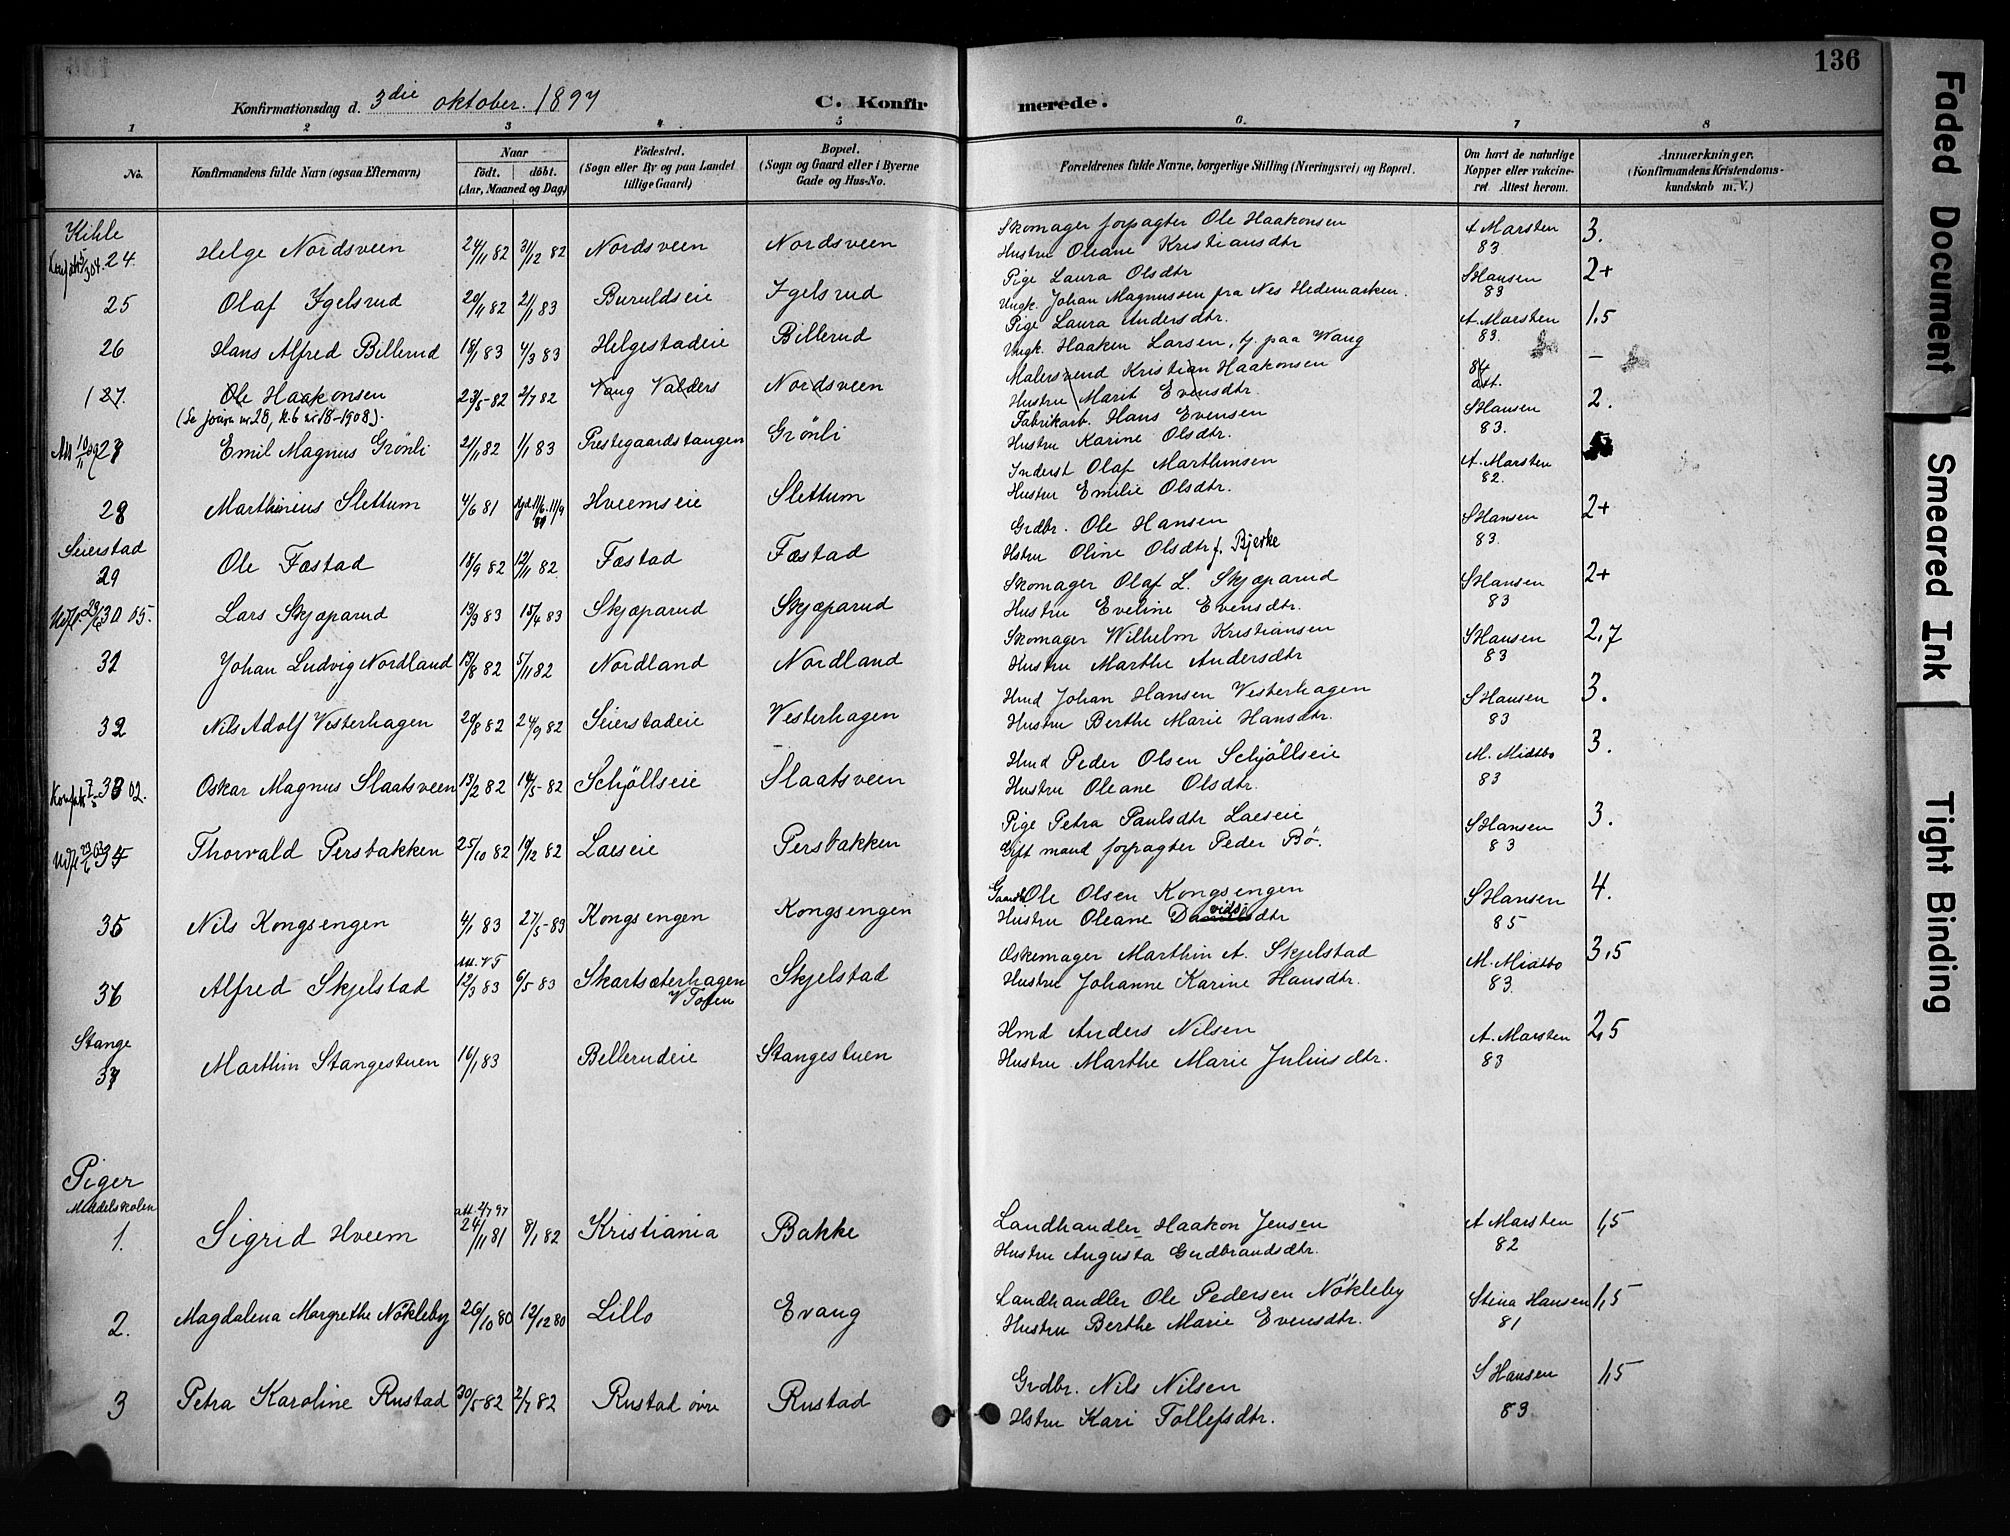 136
Konfirmationsdag d. 3die oktober. 1897 C. Konfirmerede.
1 2 3 4 5 6 7 8
No. Konfirmandens fulde Navn (ogsaa Efternavn) Naar født. døbt. (Aar, Maaned og Dag) Fødested. (Sogn eller By og paa Landet tillige Gaard) Bopæl. (Sogn og Gaard eller i Byerne Gade og Hus-No. Forældrenes fulde Navne, borgerlige Stilling (Næringsvei) og Bopæl. Om havt de naturlige Kopper eller vakcineret. Attest herom. Anmærkninger. (Konfirmandens Kristendomskundskab m. V.)
Kihle
24. Helge Nordsveen 24/11 82 31/12 82 Nordsveen Nordsveen Skomager forpagter Ole Haakonsen A Marsten 3.
Hustru Oleane Kristiansdtr 83
25 Olaf Igelsrud 20/11 82 2/1 83 Buruldseie Igelsrud Pige Laura Olsdtr S Hansen 2+
Ungk. Johan Magnussen fra Nes Hedemarken. 83
26 Hans Alfred Billerud 18/1 83 4/3 83 Helgestadeie Billerud Pige Laura Andersdtr. A. Marsten 1,5
Ungk. Haaken Larsen, tj. paa Wang 83.
27. Ole Haakonsen 23/5-82 2/7 82 Vang Valders Nordsveen Malersvend Kristian Haakonsen 84 —
(Se journ nr 28, K. 6 nr 18-1908). Hustru Marit Evensdtr. att.
27 Emil Magnus Grönli 21/11 82 1/1 83 Prestegaardstangen Grönli Fabrikarb. Hans Evensen S Hansen 2.
Hustru Karine Olsdtr. 83.
28 Marthinius Slettum 4/6 81 11/9 Hveemseie Slettum Inderst Olaf Marthinsen A. Marsten
Hustru Emilie Olsdtr. 82.
Seierstad
29 Ole Fæstad 18/9 82 12/11 82. Fæstad Fæstad Grdbr. Ole Hansen S Hansen 2+
Hstru Oline Olsdtr f. Bjerke 83.
30 05. Lars Skjæparud 13/3 83 15/4 83 Skjæparud Skjæparud Skomager Olaf L. Skjæparud S Hansen 2+
Hustru Eveline Evensdtr. 83
31 Johan Ludvig Nordland 13/8 82 5/11 82 Nordland Nordland Skomager Wilhelm Kristiansen S Hansen 2,7
Hustru Marthe Andersdtr 83
32 Nils Adolf Vesterhagen 20/8 82 24/9 82 Seierstadeie Vesterhagen Hmd Johan Hansen Vesterhagen S Hansen 3.
Hustru Berthe Marie Hansdtr. 83
33 02. Oskar Magnus Slaatsveen 13/2 82 14/5-82 Schjöllseie Slaatsveen Hmd Peder Olsen Schjöllseie M. Midtbo 3.
Hustru Oleane Olsdtr. 83
34 Thorvald Persbakken 25/10 82 10/12 82 Laeseie Persbakken Pige Petra Paulsdtr Laeseie S Hansen 3.
Gift mand forpagter Peder Bö. 83
35 Nils Kongsengen 4/1 83 27/5-83 Kongsengen Kongsengen Gaardb Ole Olsen Kongsengen S Hansen 4.
Hustru Oleane Davidsdtr 85
36 Alfred Skjelstad 12/3 83 6/5 83 Skartsæterhagen V Toten Skjelstad Oskemager Marthin A. Skjelstad M. Midtbo 3,5
Hustru Johanne Karine Hansdtr. 83.
Stange
37 Marthin Stangestuen 16/1 83 Billerudeie Stangestuen Hmd Anders Nilsen A. Marsten 2,5
Hustru Marthe Marie Juliusdtr. 83
Piger
Middelskolen
1. Sigrid Hveem att. 2/7 97 24/11 81 8/1 82 Kristiania Bakke Landhandler Haakon Jensen A Marsten 1,5
Hustru Augusta Gudbrandsdtr. 82
2. Magdalena Margrethe Nökleby 26/10 80 12/12 80 Lillo Evang Landhandler Ole Pedersen Nökleby Stina Hansen 1,5
Hustru Berthe Marie Evensdtr. 81
3 Petra Karoline Rustad 30/5-82 2/7 82 Rustad övre Rustad Grdbr. Nils Nilsen S Hansen 1,5
Hstru Kari Tollefsdtr. 83
Faded Document
Smeared Ink
Tight Binding